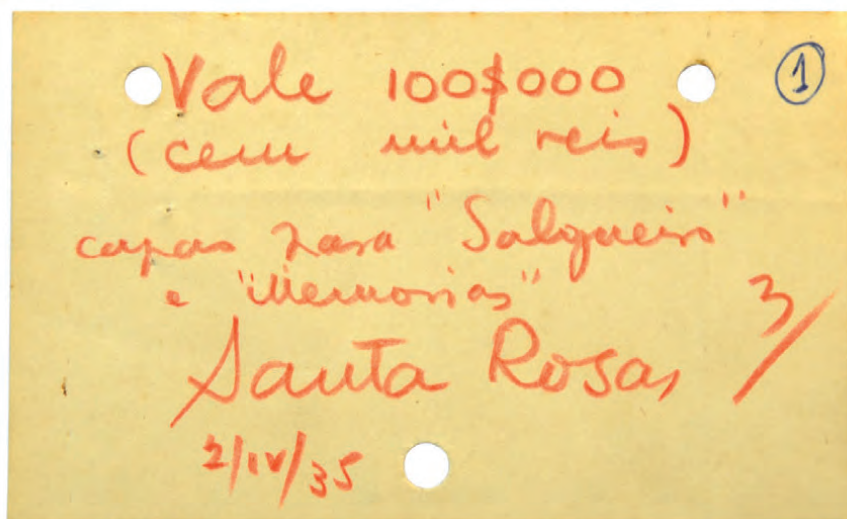 Vale 100$000
1
(cem mil reis)
capas para "Salgueiro"
e "Memorias"
3/
Santa Rosa,
2/IV/35